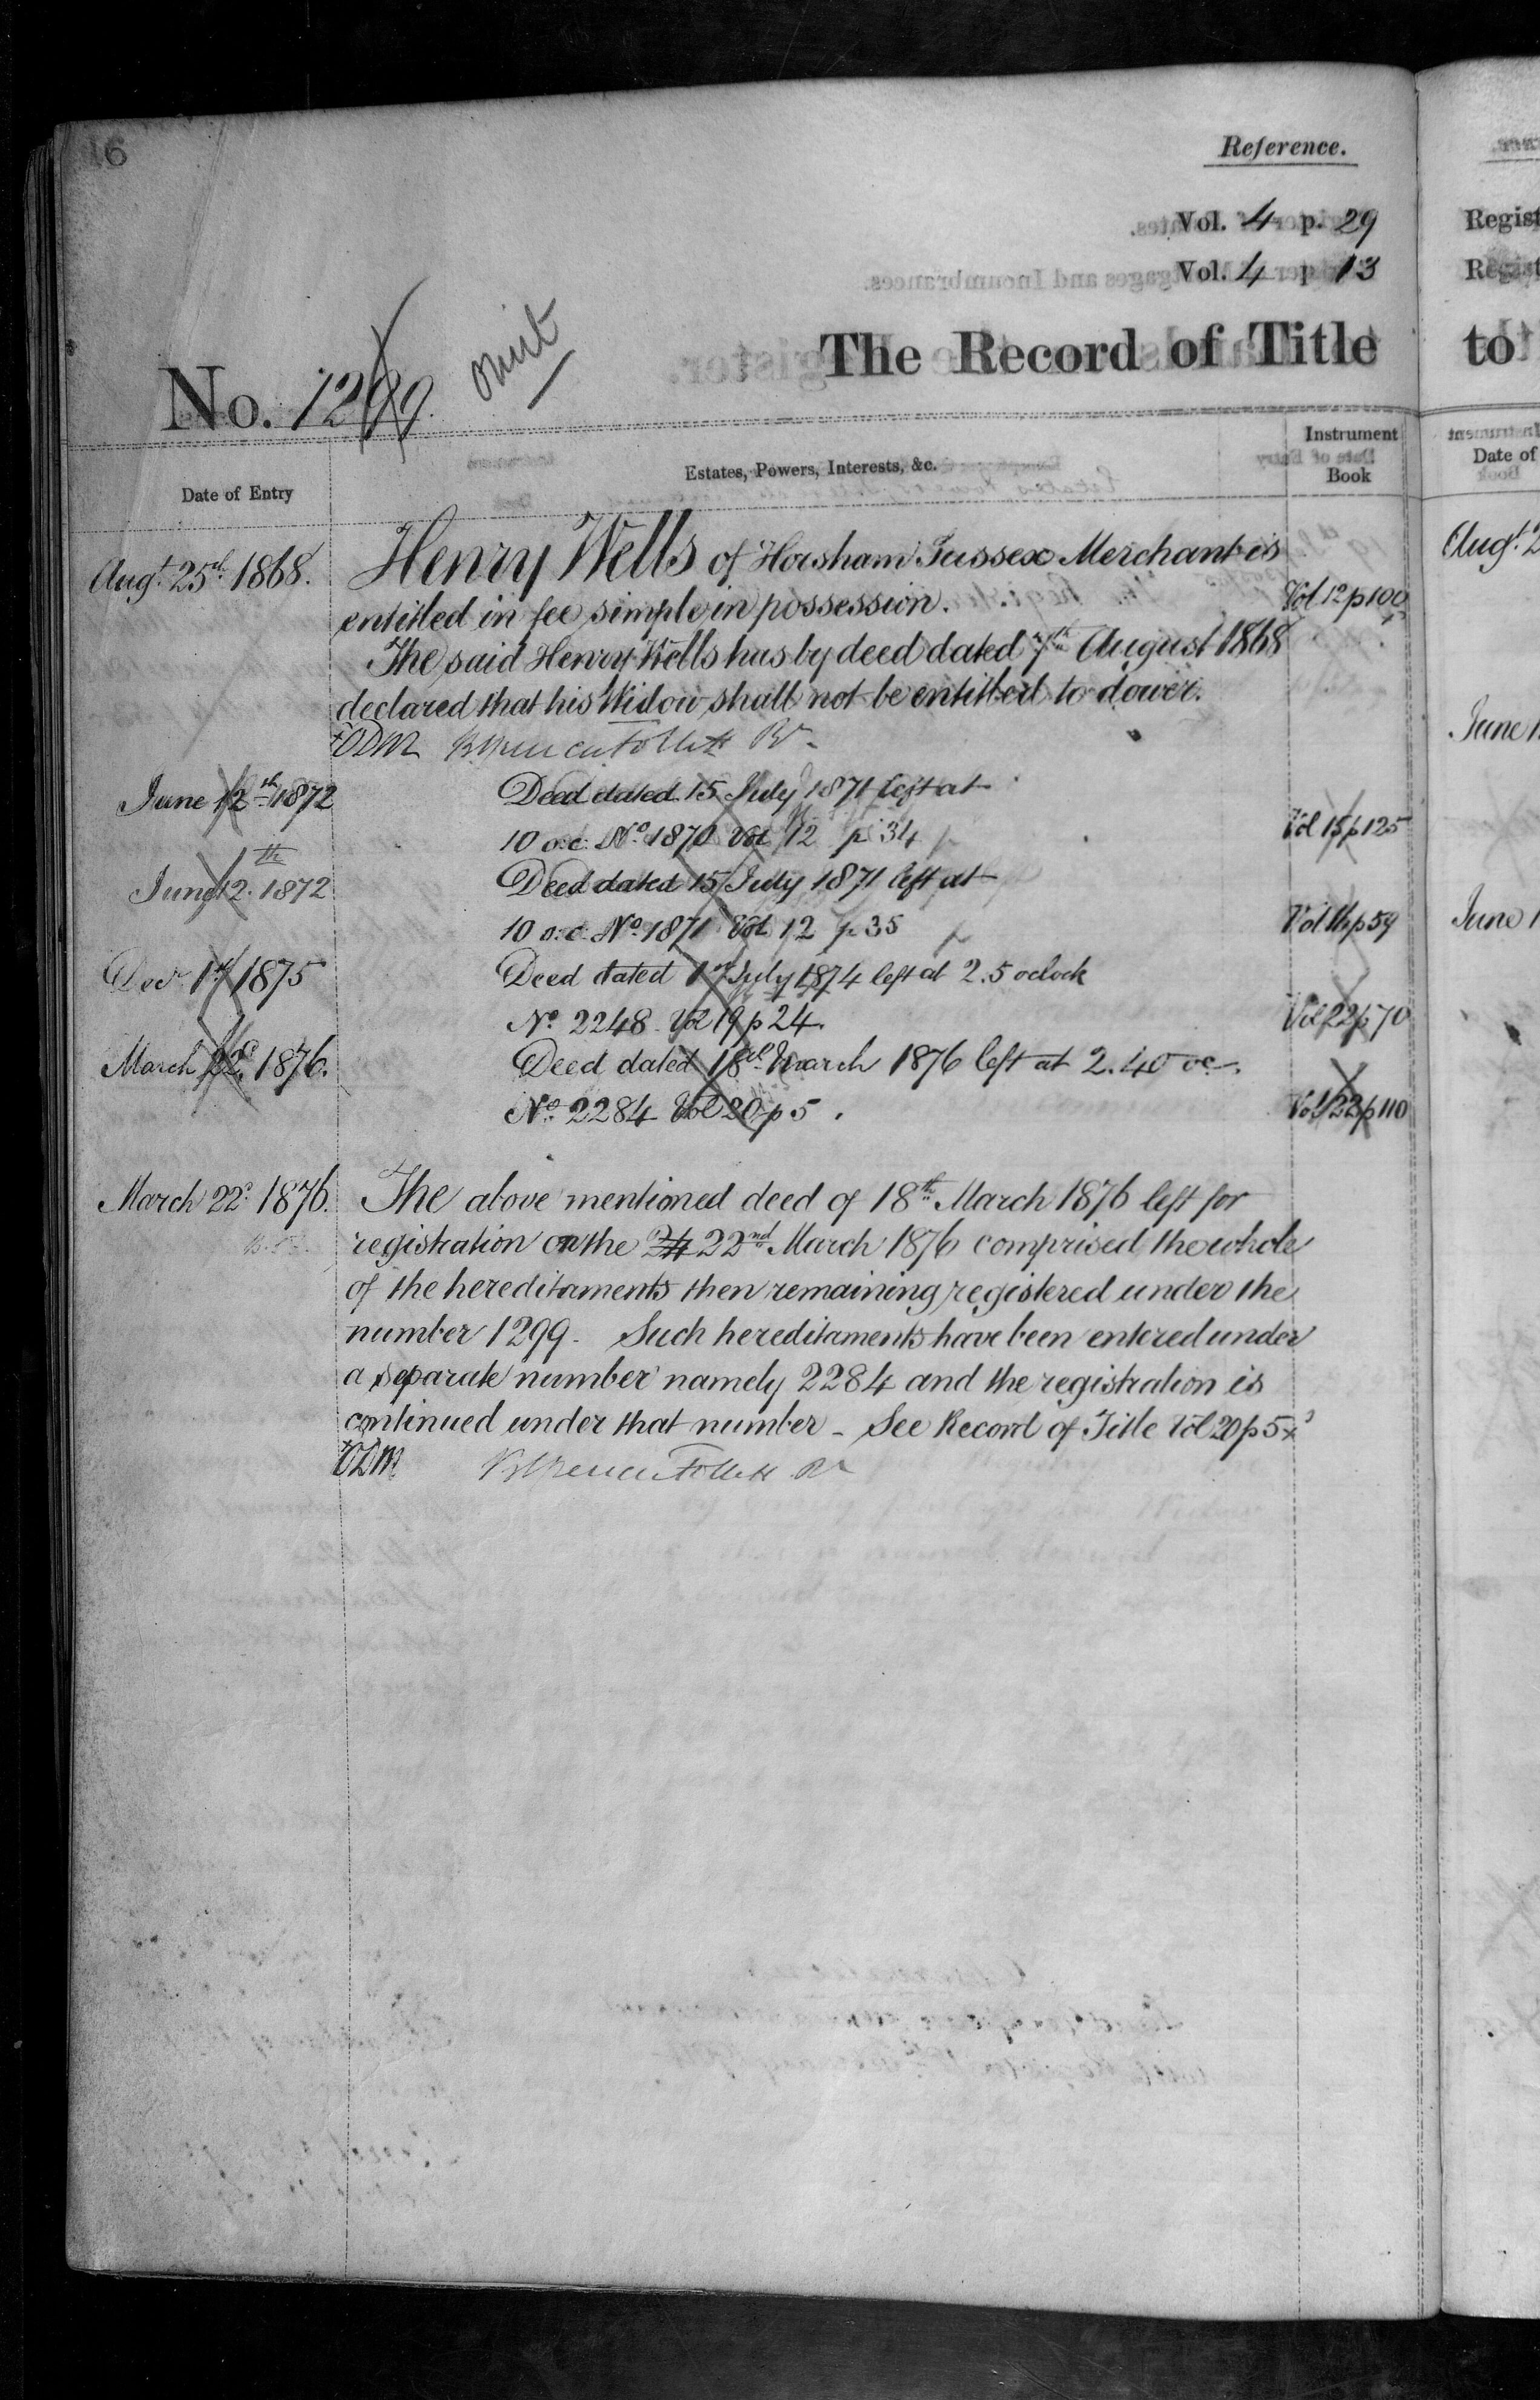 16
Reference.
Vol. 4 p. 29
Vol. 4 p 13
No. 1299. omit
The Record of Title
Date of Entry
Estates, Powers, Interests, &c.
Instrument Book
Augt. 25th 1868. Henry Wells of Horsham Sussex Merchant is
entitled in fee simple in possession. Vol 12 p 100
The said Henry Wells has by deed dated 7th August 1868
declared that his Widow shall not be entitled to dower.
June 12th 1872 Deed dated 15 July 1871 left at
10 o.c. No. 1870 Vol 12 p 34 Vol 15 p 125
June 12th 1872 Deed dated 15 July 1871 left at
10 o.c. No. 1871 Vol 12 p 35 Vol 16 p 59
Decr 1st 1875 Deed dated 1st July 1874 left at 2.5 oclock
No. 2248 Vol 19 p 24. Vol 22 p 70
March 22d. 1876. Deed dated 18th March 1876 left at 2.40 oc.
No. 2284 Vol 20 p 5. Vol 22 p 110
March 22d 1876. The above mentioned deed of 18th March 1876 left for
registration on the 24 22nd March 1876 comprised the whole
of the hereditaments then remaining registered under the
number 1299. Such hereditaments have been entered under
a separate number namely 2284 and the registration is
continued under that number - See Record of Title Vol 20 p 5
Regist
Regist
to
Date of
Augt. 2
June 1
June 1